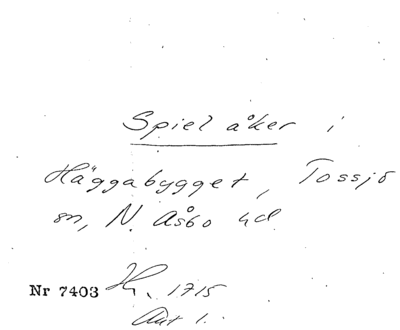 Spiel åker i
Häggabygget, Tossjö
sn, N. Åsbo hd
Nr 7403 Hs. 1715
Akt 1.